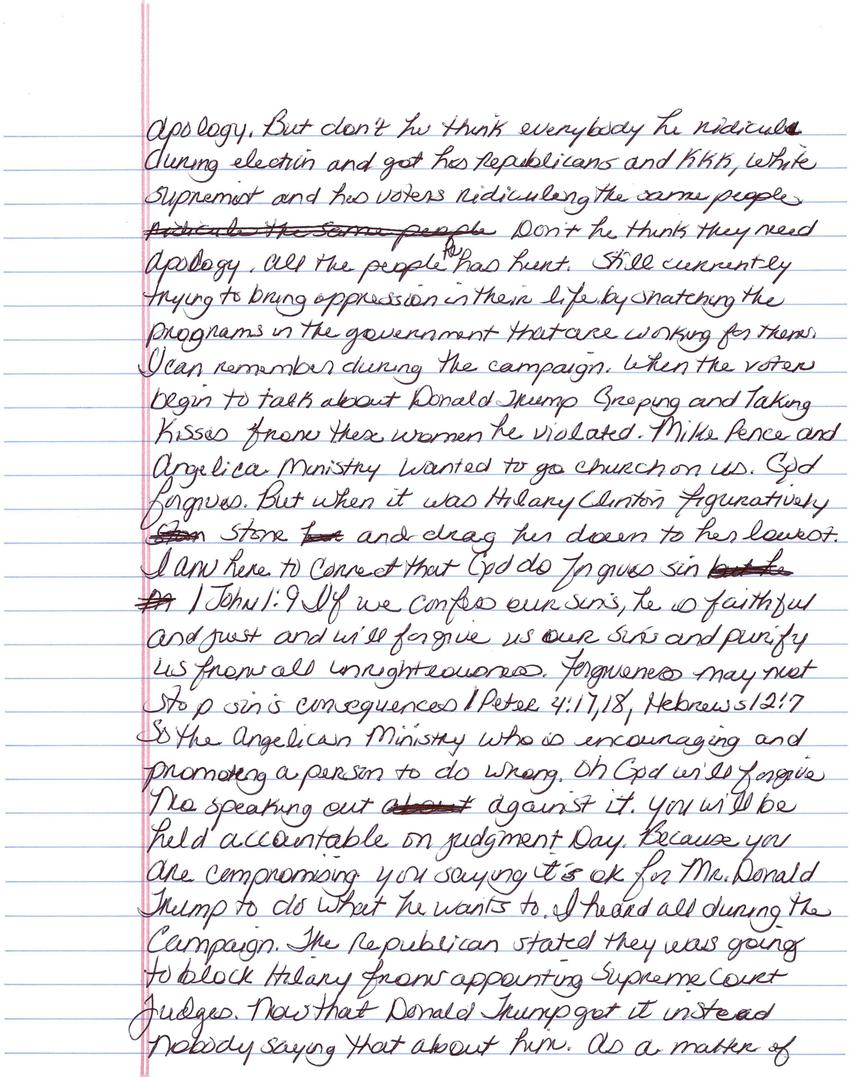 apology. But don't he think everybody he ridicule
during election and got his Republicans and KKK, White
supremist and his voters ridiculing the same people
ridicule the same people Don't he think they need
apology. all the people he has hurt. Still currently
trying to bring oppression in their life by snatching the
programs in the government that are working for them.
I can remember during the campaign. When the voters
begin to talk about Donald Trump Greping and Taking
Kisses from these women he violated. Mike Pence and
Angelica Ministry wanted to go church on us. God
forgives. But when it was Hilary Clinton figuratively
stone and drag her down to her lowest.
I am here to correct that God do forgives sin but he
1 John 1:9 If we confess our sins, he is faithful
and just and will forgive us our sins and purify
us from all unrighteousness. Forgiveness may not
stop sin's consequences 1 Peter 4:17,18, Hebrews 12:7
So the Angelican Ministry who is encouraging and
promoting a person to do wrong. Oh God will forgive
No speaking out about against it. you will be
held accountable on judgment Day. Because you
are compromising you saying it's ok for Mr. Donald
Trump to do what he wants to. I heard all during the
Campaign. The Republican stated they was going
to block Hilary from appointing Supreme Court
Judges. Now that Donald Trump got it instead
nobody saying that about him. As a matter of